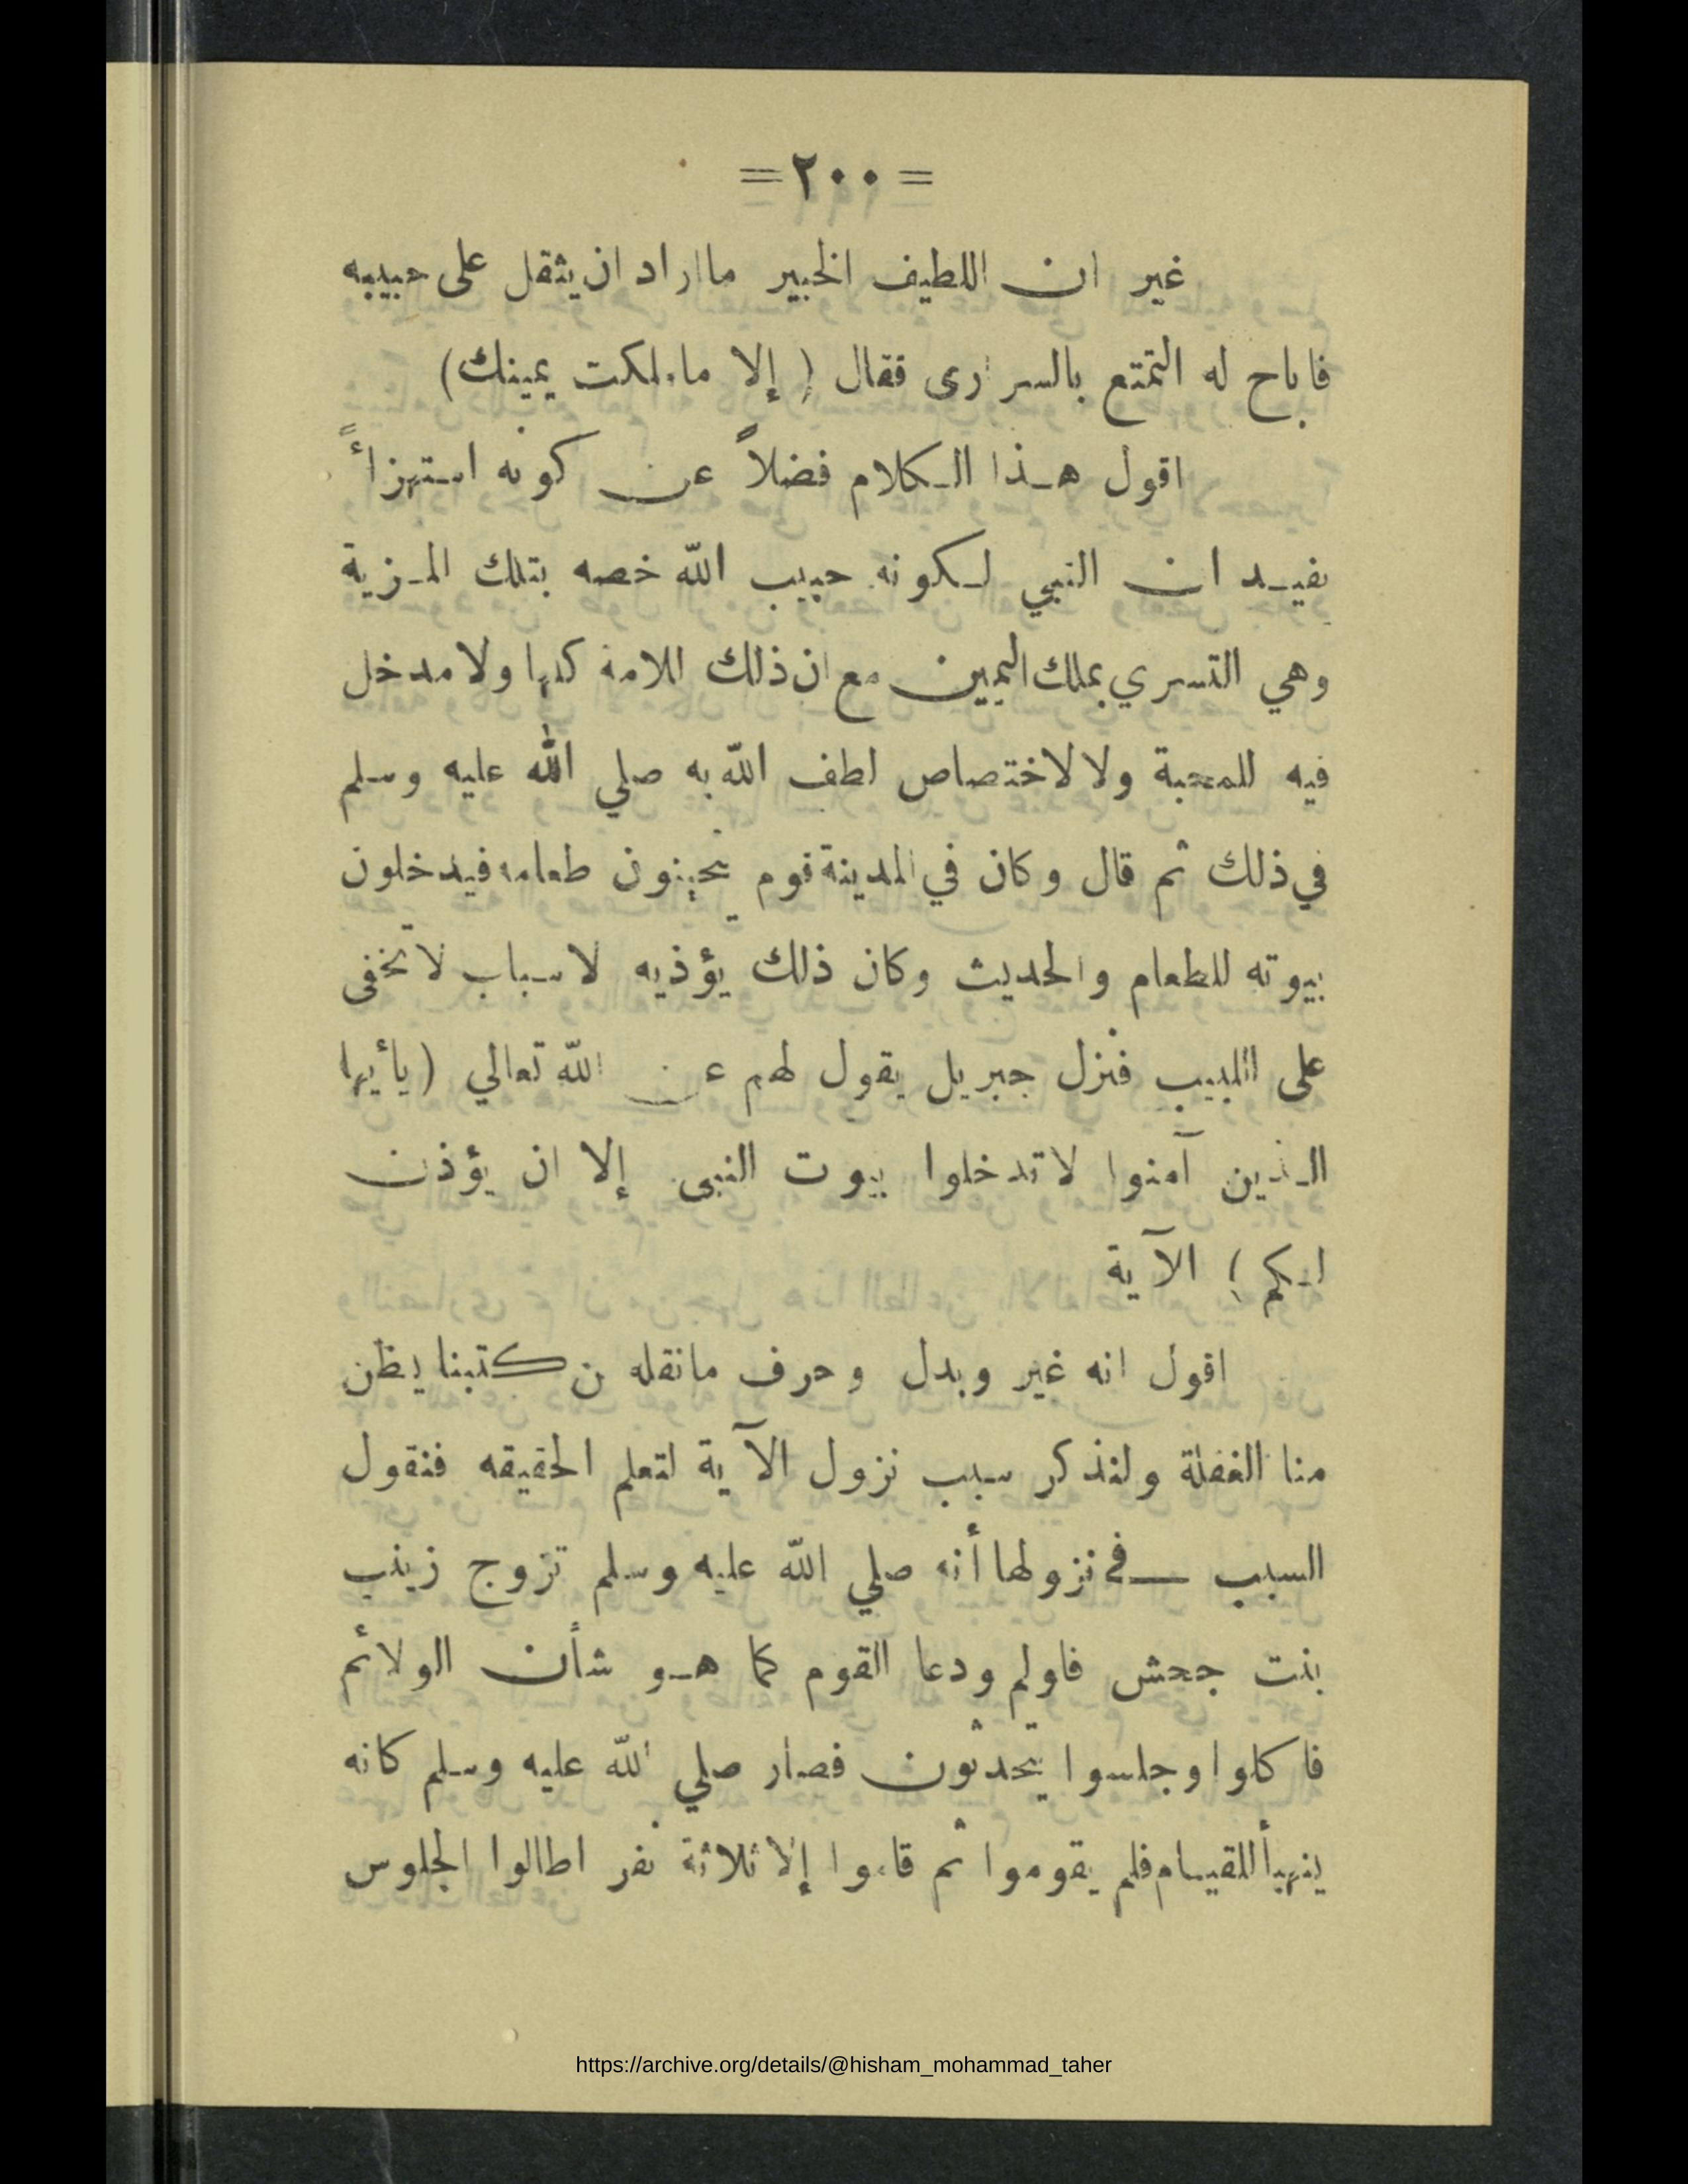 =٢٠٠=
غير ان اللطيف الخبير ما اراد ان يثقل على حبيبه
فاباح له التمتع بالسرارى فقال ( إلا ماملكت يمينك)
اقول هذا الكلام فضلاً عن كونه استهزاءً
يفيد ان النبي لكونه حبيب الله خصه بتلك المزية
وهي التسري بملك اليمين مع ان ذلك للامة كلها ولا مدخل
فيه للمحبة ولا لاختصاص لطف الله به صلي الله عليه وسلم
في ذلك ثم قال وكان في المدينة قوم يتحينون طعامه فيدخلون
بيوته للطعام والحديث وكان ذلك يؤذيه لاسباب لاتخفى
على اللبيب فنزل جبريل يقول لهم عن الله تعالي (يأيها
الذين آمنوا لاتدخلوا بيوت النبى إلا ان يؤذن
لكم) الآية
اقول انه غير وبدل وحرف مانقله من كتبنا يظن
منا الغفلة ولنذكر سبب نزول الآية لتعلم الحقيقه فنقول
السبب في نزولها أنه صلي الله عليه وسلم تزوج زينب
بنت جحش فاولم ودعا القوم كما هو شأن الولائم
فاكلوا وجلسوا يتحدثون فصار صلي الله عليه وسلم كانه
يتهيأ للقيام فلم يقوموا ثم قاموا إلا ثلاثة نفر اطالوا الجلوس
https://archive.org/details/@hisham_mohammad_taher